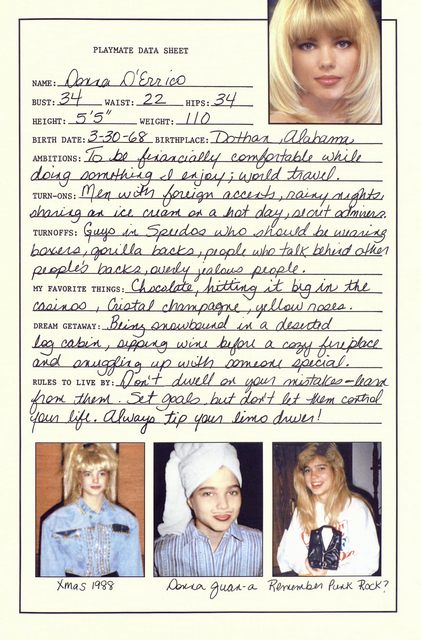 PLAYMATE DATA SHEET
NAME: Donna D'Errico
BUST: 34 WAIST: 22 HIPS: 34
HEIGHT: 5'5" WEIGHT: 110
BIRTH DATE: 3-30-68 BIRTHPLACE: Dothan, Alabama
AMBITIONS: To be financially comfortable while
doing something I enjoy; world travel.
TURN-ONS: Men with foreign accents, rainy nights,
sharing an ice cream on a hot day, secret admirers.
TURNOFFS: Guys in Speedos who should be wearing
boxers, gorilla backs, people who talk behind other
people's backs, overly jealous people.
MY FAVORITE THINGS: Chocolate, hitting it big in the
casinos, Cristal champagne, yellow roses.
DREAM GETAWAY: Being snowbound in a deserted
log cabin, sipping wine before a cozy fireplace
and snuggling up with someone special.
RULES TO LIVE BY: Don't dwell on your mistakes-learn
from them. Set goals, but don't let them control
your life. Always tip your limo driver!
Xmas 1988 Donna Juan-a Remember Punk Rock?